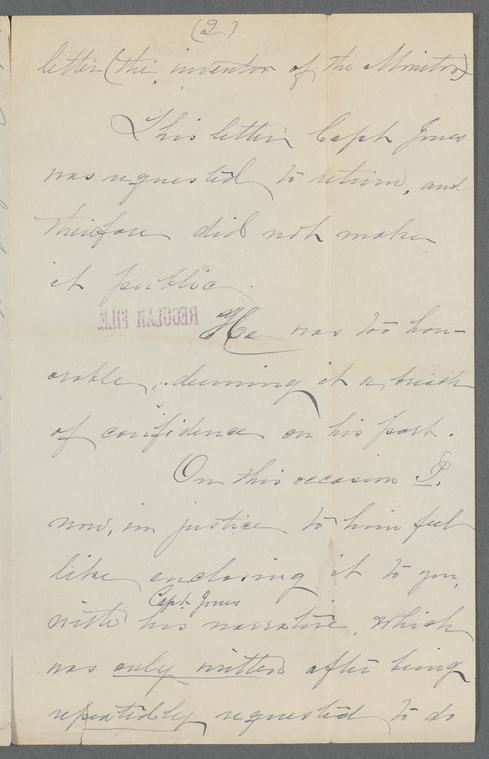 (2)
letter (the inventor of the Monitor)
This letter Capt Jones
was requested to return, and
therefore did not make
it public.
REGULAR FILE
He was too hon-
orable, deeming it a breach
of confidence on his part.
On this occasion I,
now, in justice to him feel
like enclosing it to you,
Capt. Jones
with his narrative, which
was only written after being
repeatedly requested to do